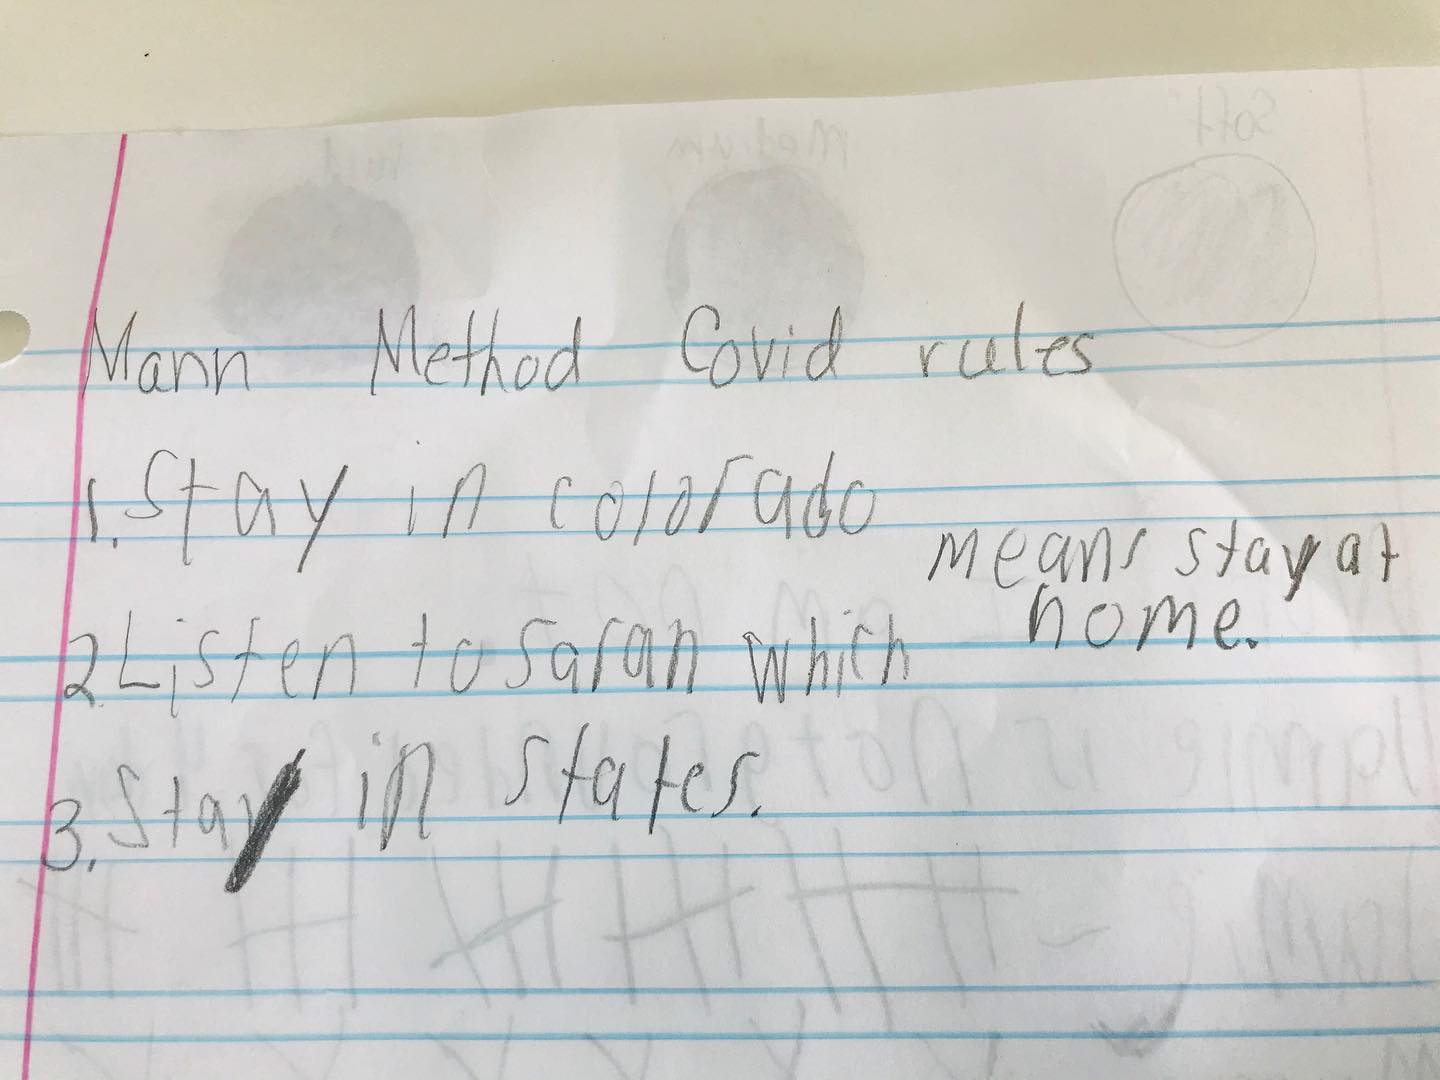 Mann Method Covid rules
1. Stay in colorado
2 Listen to Sarah which means stay at home.
3. Stay in states.
Soft
Medium